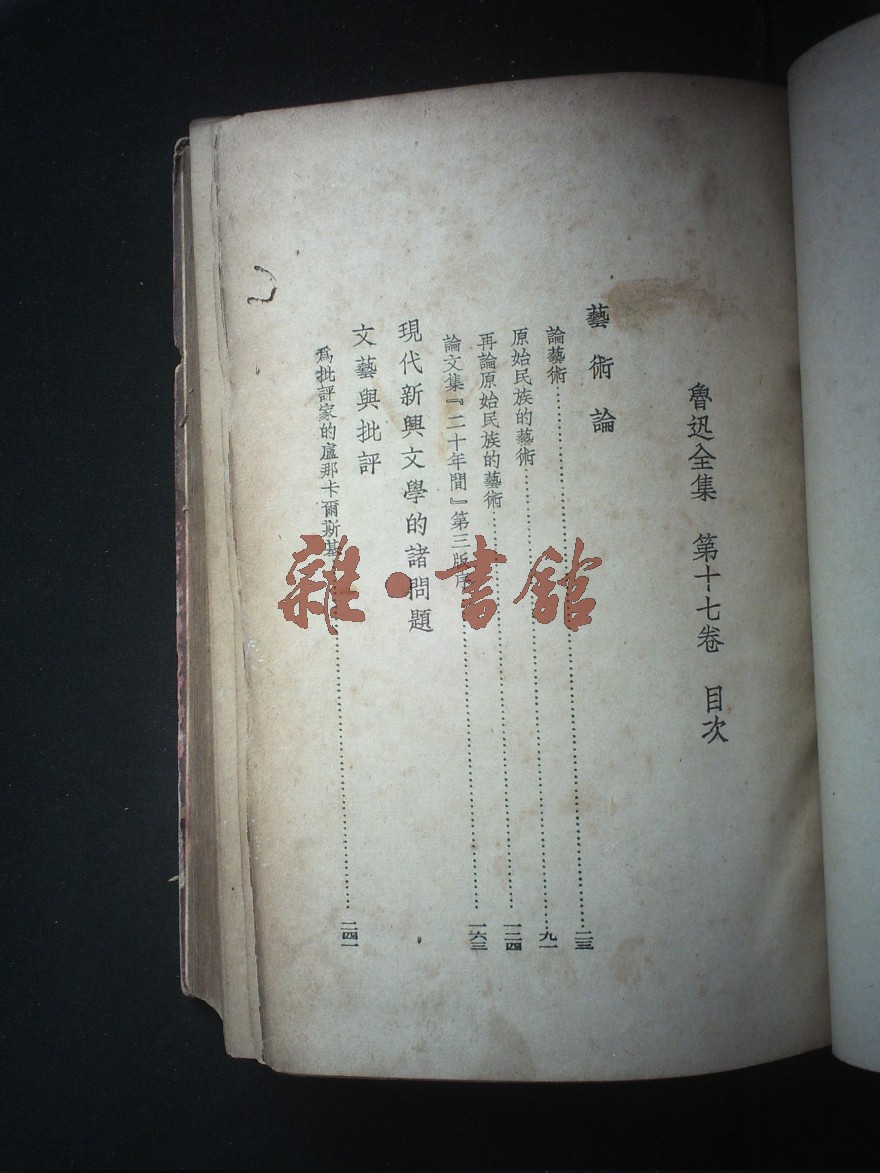 魯迅全集 第十七卷 目次
藝術論
論藝術……二三
原始民族的藝術……九一
再論原始民族的藝術……一二四
論文集『二十年間』第三版序……一六三
現代新興文學的諸問題
文藝與批評
爲批評家的盧那卡爾斯基……二四一
雜·書館